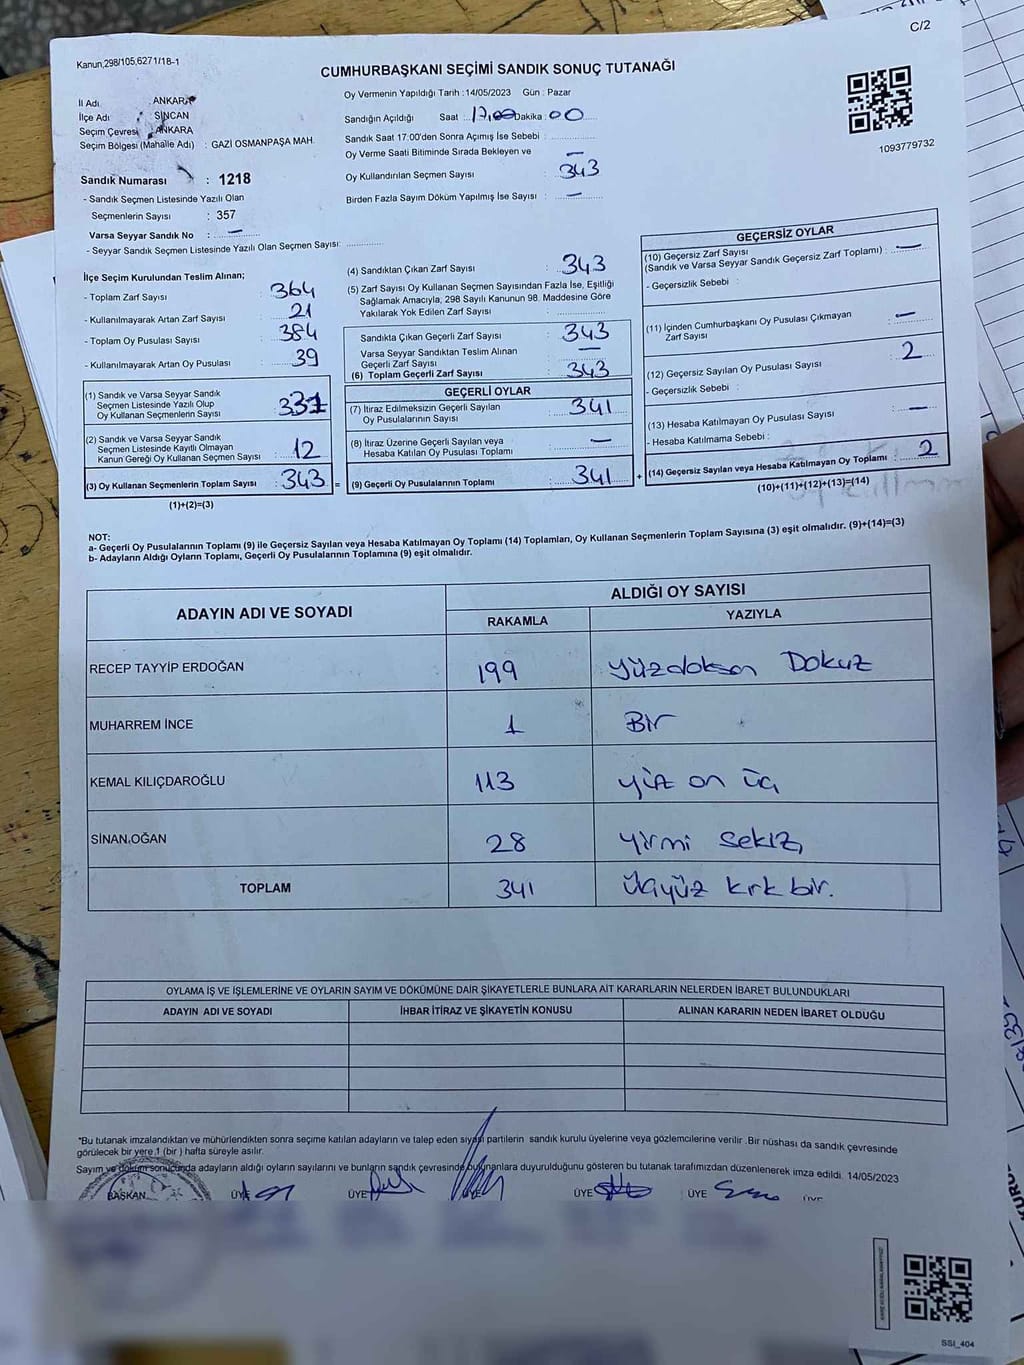 C/2
Kanun,298/105,6271/18-1
CUMHURBAŞKANI SEÇİMİ SANDIK SONUÇ TUTANAĞI
İl Adı : ANKARA
İlçe Adı : SİNCAN
Seçim Çevresi : ANKARA
Seçim Bölgesi (Mahalle Adı) : GAZİ OSMANPAŞA MAH.
Oy Vermenin Yapıldığı Tarih :14/05/2023 Gün : Pazar
Sandığın Açıldığı Saat 17,00 Dakika : 00
Sandık Saat 17:00'den Sonra Açımış İse Sebebi :
Oy Verme Saati Bitiminde Sırada Bekleyen ve –
Oy Kullandırılan Seçmen Sayısı : 343
Birden Fazla Sayım Döküm Yapılmış İse Sayısı : –
1093779732
Sandık Numarası : 1218
- Sandık Seçmen Listesinde Yazılı Olan
Seçmenlerin Sayısı : 357
Varsa Seyyar Sandık No : –
- Seyyar Sandık Seçmen Listesinde Yazılı Olan Seçmen Sayısı:
İlçe Seçim Kurulundan Teslim Alınan;
- Toplam Zarf Sayısı : 364
- Kullanılmayarak Artan Zarf Sayısı : 21
- Toplam Oy Pusulası Sayısı : 384
- Kullanılmayarak Artan Oy Pusulası : 39
(1) Sandık ve Varsa Seyyar Sandık
Seçmen Listesinde Yazılı Olup
Oy Kullanan Seçmenlerin Sayısı : 331
(2) Sandık ve Varsa Seyyar Sandık
Seçmen Listesinde Kayıtlı Olmayan
Kanun Gereği Oy Kullanan Seçmen Sayısı : 12
(3) Oy Kullanan Seçmenlerin Toplam Sayısı : 343 =
(1)+(2)=(3)
(4) Sandıktan Çıkan Zarf Sayısı : 343
(5) Zarf Sayısı Oy Kullanan Seçmen Sayısından Fazla İse, Eşitliği
Sağlamak Amacıyla, 298 Sayılı Kanunun 98. Maddesine Göre
Yakılarak Yok Edilen Zarf Sayısı :
Sandıkta Çıkan Geçerli Zarf Sayısı : 343
Varsa Seyyar Sandıktan Teslim Alınan
Geçerli Zarf Sayısı : –
(6) Toplam Geçerli Zarf Sayısı : 343
GEÇERLİ OYLAR
(7) İtiraz Edilmeksizin Geçerli Sayılan
Oy Pusulalarının Sayısı : 341
(8) İtiraz Üzerine Geçerli Sayılan veya
Hesaba Katılan Oy Pusulası Toplamı : –
(9) Geçerli Oy Pusulalarının Toplamı : 341 +
GEÇERSİZ OYLAR
(10) Geçersiz Zarf Sayısı
(Sandık ve Varsa Seyyar Sandık Geçersiz Zarf Toplamı) : –
- Geçersizlik Sebebi :
(11) İçinden Cumhurbaşkanı Oy Pusulası Çıkmayan
Zarf Sayısı : –
(12) Geçersiz Sayılan Oy Pusulası Sayısı : 2
- Geçersizlik Sebebi :
(13) Hesaba Katılmayan Oy Pusulası Sayısı : –
- Hesaba Katılmama Sebebi :
(14) Geçersiz Sayılan veya Hesaba Katılmayan Oy Toplamı : 2
(10)+(11)+(12)+(13)=(14)
NOT:
a- Geçerli Oy Pusulalarının Toplamı (9) ile Geçersiz Sayılan veya Hesaba Katılmayan Oy Toplamı (14) Toplamları, Oy Kullanan Seçmenlerin Toplam Sayısına (3) eşit olmalıdır. (9)+(14)=(3)
b- Adayların Aldığı Oyların Toplamı, Geçerli Oy Pusulalarının Toplamına (9) eşit olmalıdır.
ADAYIN ADI VE SOYADI
ALDIĞI OY SAYISI
RAKAMLA YAZIYLA
RECEP TAYYİP ERDOĞAN 199 Yüzdoksan Dokuz
MUHARREM İNCE 1 Bir
KEMAL KILIÇDAROĞLU 113 yüz on üç
SİNAN OĞAN 28 yirmi sekiz
TOPLAM 341 Üçyüz kırk bir.
OYLAMA İŞ VE İŞLEMLERİNE VE OYLARIN SAYIM VE DÖKÜMÜNE DAİR ŞİKAYETLERLE BUNLARA AİT KARARLARIN NELERDEN İBARET BULUNDUKLARI
ADAYIN ADI VE SOYADI İHBAR İTİRAZ VE ŞİKAYETİN KONUSU ALINAN KARARIN NEDEN İBARET OLDUĞU
"Bu tutanak imzalandıktan ve mühürlendikten sonra seçime katılan adayların ve talep eden siyasi partilerin sandık kurulu üyelerine veya gözlemcilerine verilir .Bir nüshası da sandık çevresinde
görülecek bir yere 1 (bir ) hafta süreyle asılır.
Sayım ve döküm sonucunda adayların aldığı oyların sayılarını ve bunların sandık çevresinde bulunanlara duyurulduğunu gösteren bu tutanak tarafımızdan düzenlenerek imza edildi. 14/05/2023
BAŞKAN ÜYE ÜYE ÜYE ÜYE ÜYE ÜYE
SSI_404